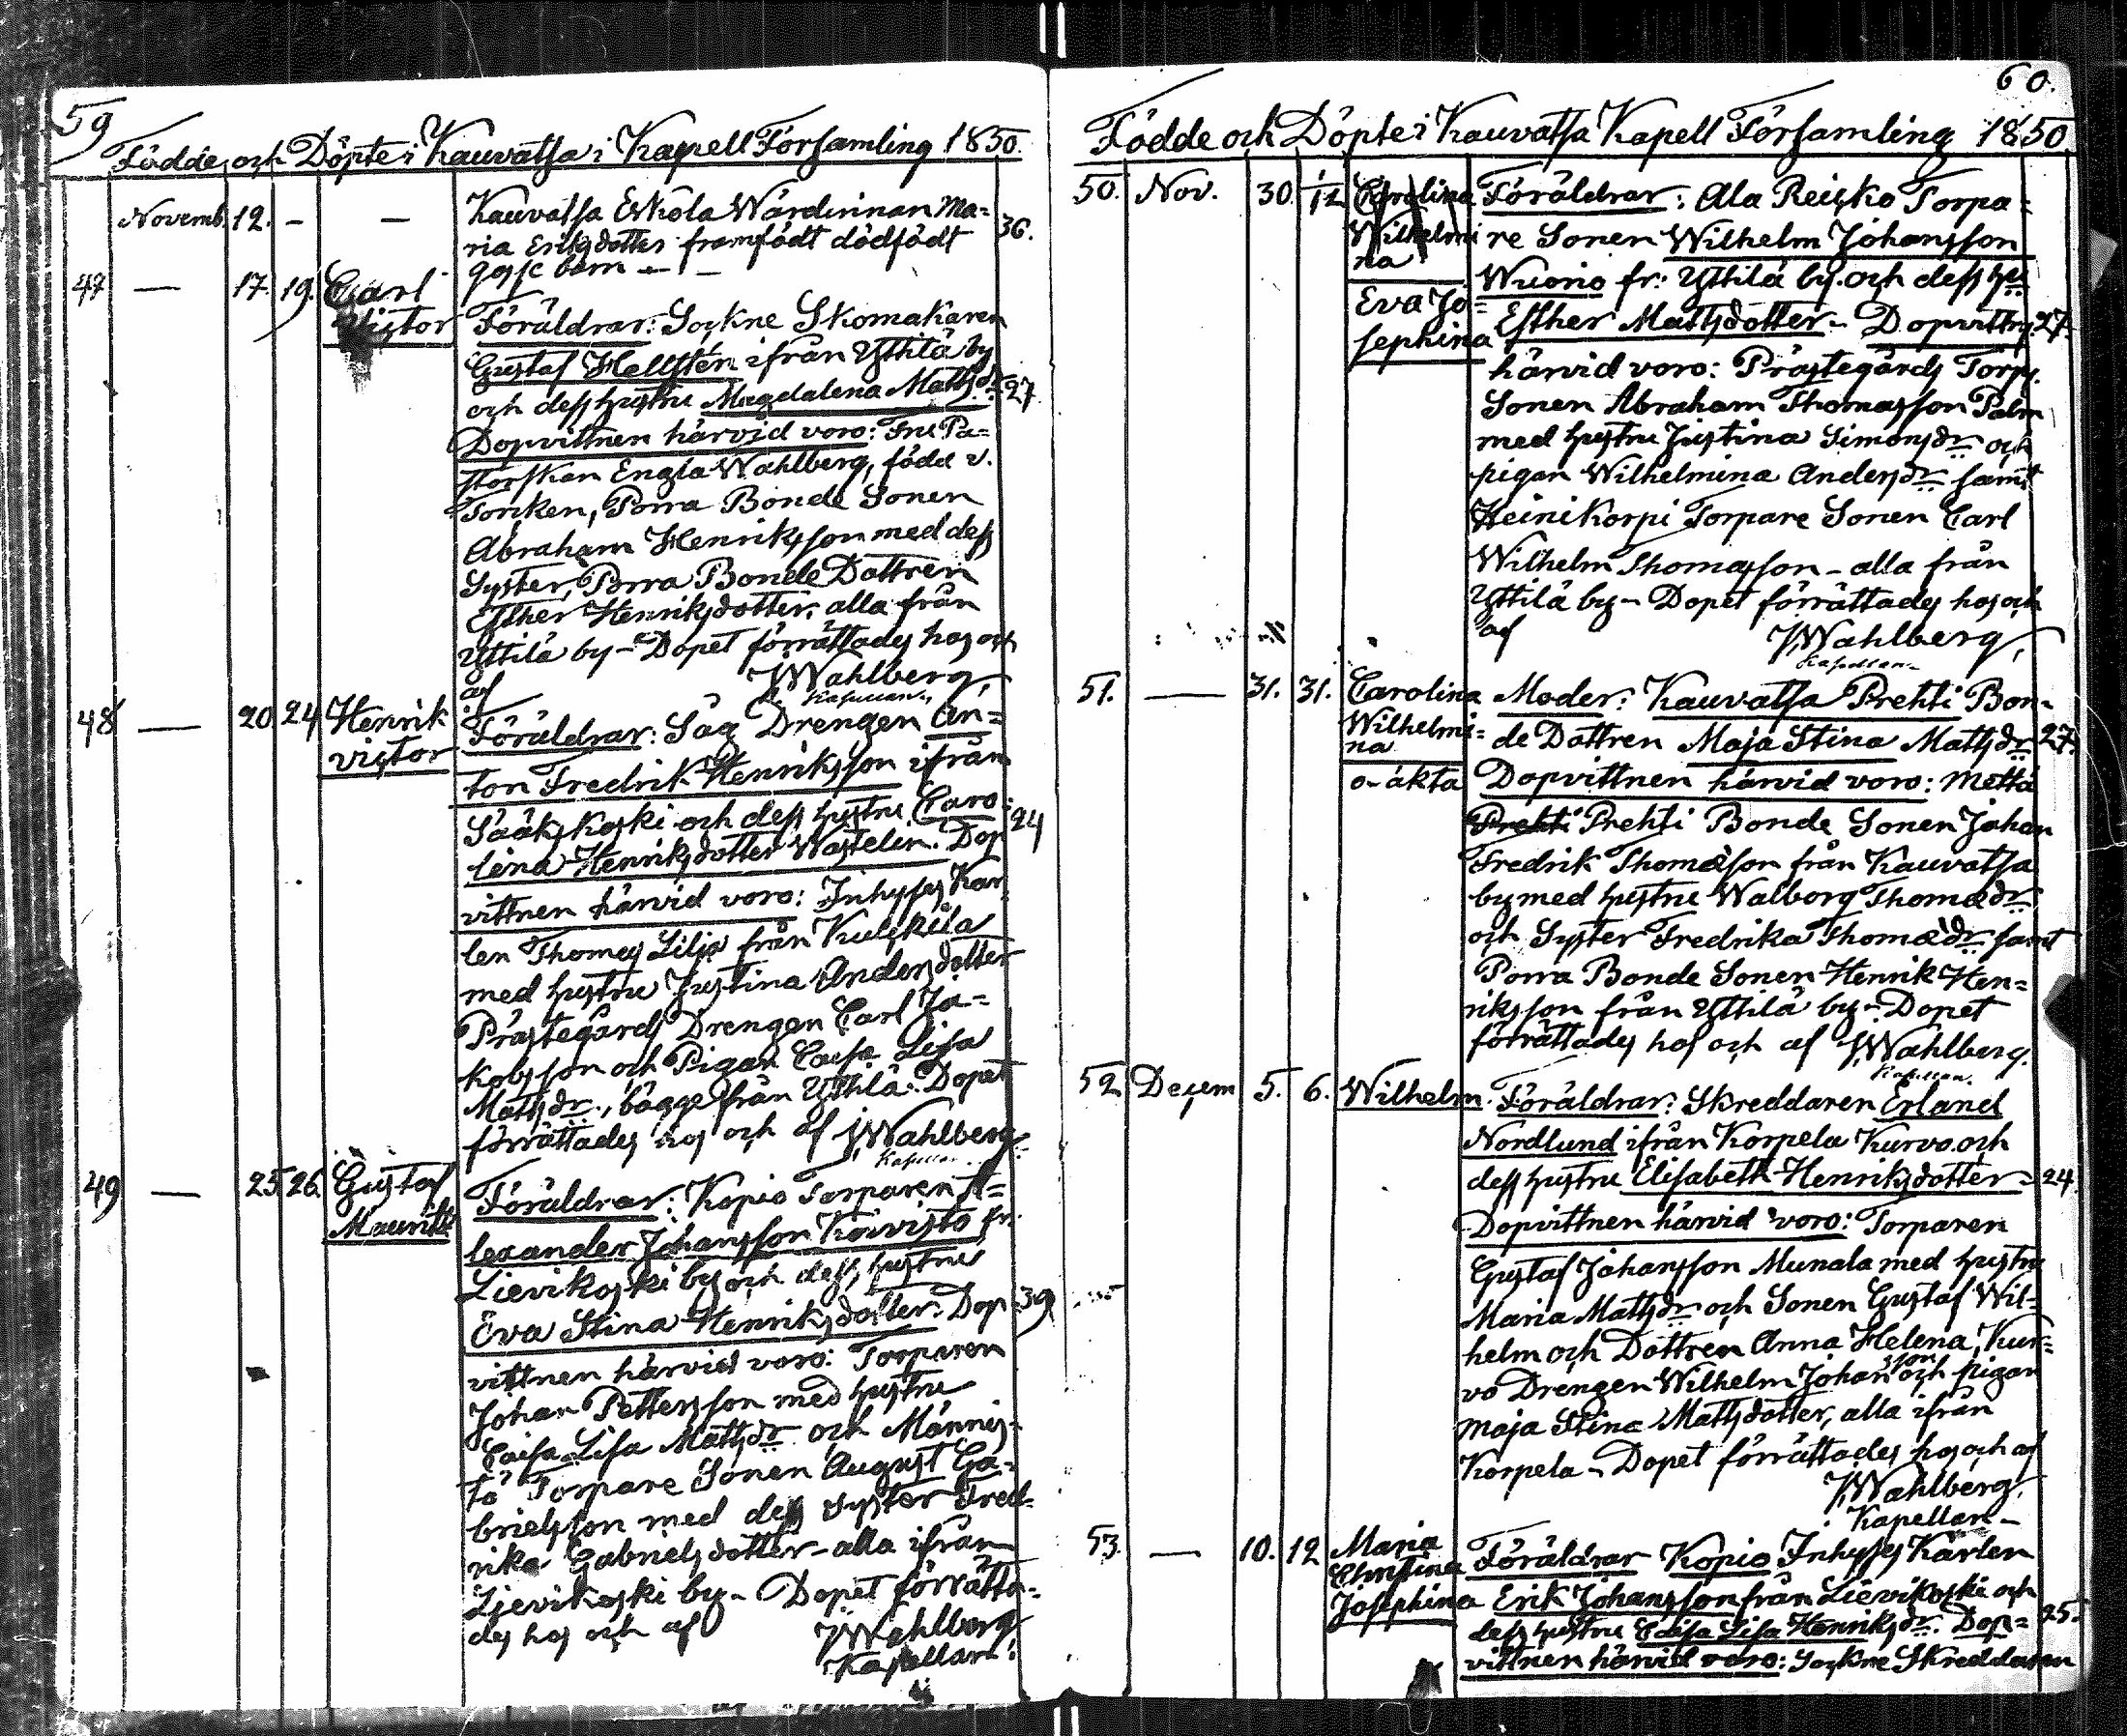 59
Födde och Döpte i Kauvatsa i Kapell Församling 1850.
Novemb. 12. - - Kauvatsa Eskola Wärdinnan Ma=
ria Eriksdotter framfödt dödfödt 36.
gosse barn - -
47 — 17. 19. Carl
Victor Föräldrar: Sockne Skomakaren
Gustaf Hellstén ifrån Yttilä by
och dess hustru Magdalena Matsdr 27
Dopvittnen härvid voro: Fru Pa=
storskan Engla Wahlberg, född v.
Torcken, Porra Bonde Sonen
Abraham Henriksson med dess
Syster, Porra Bonde Dottren
Esther Henriksdotter, alla från
Yttilä by - Dopet förrättades hos och
af JWahlberg,
Kapellan.
48 — 20. 24 Henrik Föräldrar: Såg Drengen An=
Victor
ton Fredrik Henriksson ifrån
Sääkskoski och dess hustru Caro= 24
lina Henriksdotter Wastelin. Dop
vittnen härvid voro: Inhyses Kar
len Thomas Lilja från Kulkkila
med hustru Justina Andersdotter
Prästegårds Drengen Carl Ja=
kobsson och Pigan Caisa Lisa
Matsdr., bägge från Yttilä. Dopet
förrättades hos och af JWahlberg
Kapellan
49 — 25 26. Gustaf Föräldrar: Kopio Torparen A=
Mauritz
lexander Johansson Koivisto fr.
Lievikoski by och dess hustru
Eva Stina Henriksdotter. Dop 39
vittnen härvid voro: Torparen
Johan Pettersson med hustru
Caisa Lisa Matsdr och Männis=
tö Torpare Sonen August Ga=
brielsson med dess Syster Fred=
rika Gabrielsdotter - alla ifrån
Lievikoski by - Dopet förrätta=
des hos och af JWahlberg
Kapellan.
60.
Födde och Döpte i Kauvatsa Kapell Församling 1850
50. Nov. 30. 1/12 Carolina Föräldrar: Ala Reisko Torpa=
Wilhelmi re Sonen Wilhelm Johansson
na
Wuorio fr: Yttilä by och dess hu
Eva Jo=
sephina Esther Matsdotter - Dopvittn 27.
härvid voro: Prästegårds Torp.
Sonen Abraham Thomasson Palm
med hustru Justina Simonsdr och
pigan Wilhelmina Andersdr samt
Heinikorpi Torpare Sonen Carl
Wilhelm Thomasson - alla från
Yttilä by - Dopet förrättades hos och
af JWahlberg,
Kapellan
51. — 31. 31. Carolina Moder: Kauvatsa Prehti Bon=
Wilhelmi= de Dottren Maja Stina Matsdr 27.
na
o-äkta Dopvittnen härvid voro: Mettä
Prehti Prehti Bonde Sonen Johan
Fredrik Thomæson från Kauvatsa
by med hustru Walborg Thomædr
och Syster Fredrika Thomædr samt
Porra Bonde Sonen Henrik Hen=
riksson från Yttilä by - Dopet
förrättades hos och af JWahlberg.
Kapellan.
52 Decem 5. 6. Wilhelm. Föräldrar: Skreddaren Erland
Nordlund ifrån Korpela Kurvo och
dess hustru Elisabeth Henriksdotter - 24
Dopvittnen härvid voro: Torparen
Gustaf Johansson Munala med hustru
Maria Matsdr och Sonen Gustaf Wil=
helm och Dottren Anna Helena, Kur=
vo Drengen Wilhelm Johansson och pigan
Maja Stina Matsdotter, alla ifrån
Korpela - Dopet förrättades hos och af
JWahlberg,
Kapellan -
53. — 10. 12 Maria
Christina Föräldrar Kopio Inhyses Karlen
Josephina Erik Johansson från Lievikoski och
dess hustru Caisa Lisa Henriksdr. Dop= 25.
vittnen härvid voro: Sockne Skreddaren